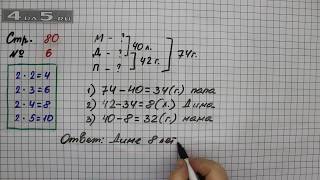 4-a5.ru
Стр. 80
№ 6
2 · 2 = 4
2 · 3 = 6
2 · 4 = 8
2 · 5 = 10
М – ?
Д – ? ] 40 л.
П – ? ] 42 г. ] 74 г.
1) 74 – 40 = 34 (г.) папа
2) 42 – 34 = 8 (л.) Дина
3) 40 – 8 = 32 (г.) мама
Ответ: Дине 8 лет